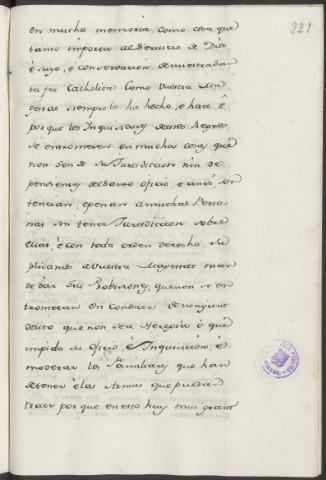 321
en mucha memoria como cosa que
tanto importa al servicio de Dios
è suyo, è conservacion de nuestra San
ta fee Catholica como Vuestra Ma
gestad siempre lo ha hecho, e hace è
por que los Inquisidores deste Regno
se entrometen en muchas cosas que
non son de su Jurisdiccion nin de
pendientes del Santo oficio, e ansi sen
tencian, e penan a muchas Perso
nas sin tener Jurisdiccion sobre
ellas, è con todo orden derecho, su
plicamos a Vuestra Magestad man
de dar sus Probisiones, que non se en
trometan en conocer de ningund
delito que non sea Heregia ò que
impida su oficio, è Inquisicion, è
moderar los Familiares que han
de tener è las Armas que puedan
traer por que en esto hay mui grand